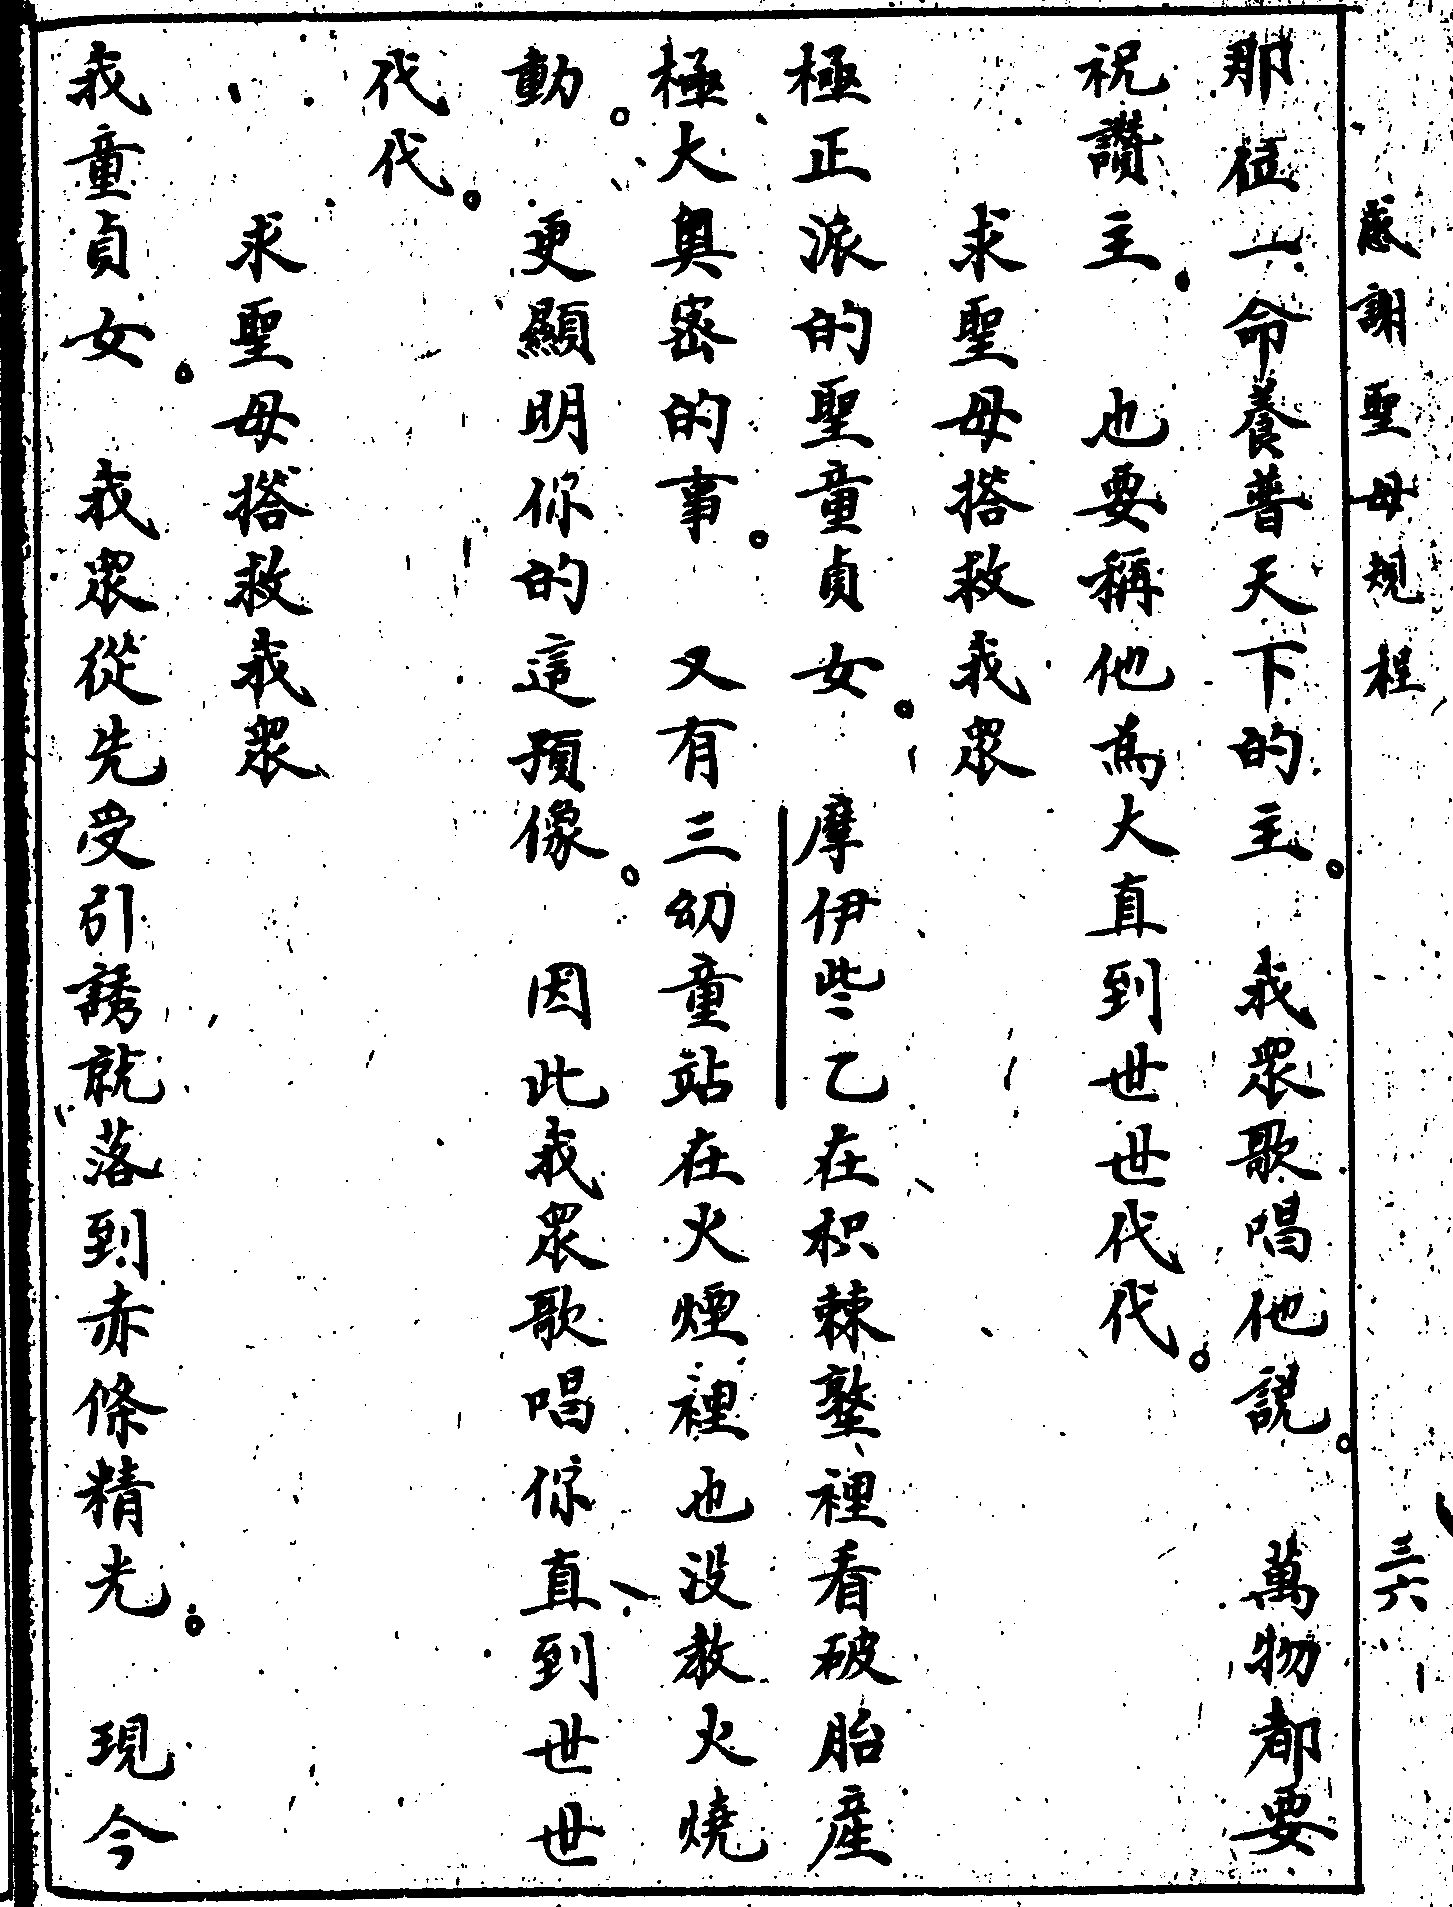 感謝聖母規程 三六
那位一命養普天下的主。我眾歌唱他說。萬物都要
祝讚主。也要稱他為大直到世世代代。
求聖母搭救我眾
極正派的聖童貞女。摩伊些乙在枳棘墪裡看破胎產
極大奧密的事。又有三幼童站在火煙裡也没教火燒
動。更顯明你的這預像。因此我眾歌唱你直到世世
代代。
求聖母搭救我眾
我童貞女。我眾從先受引誘就落到赤條精光。現今